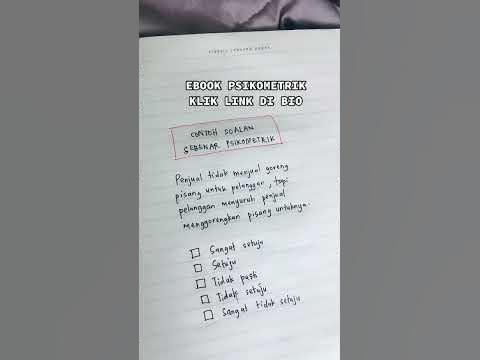 EBOOK PSIKOMETRIK
KLIK LINK DI BIO
CONTOH SOALAN
SEBENAR PSIKOMETRIK
Penjual tidak menjual goreng
pisang untuk pelanggan, tapi
pelanggan menyuruh penjual
menggorengkan pisang untuknya.
Sangat setuju
Setuju
Tidak pasti
Tidak setuju
Sangat tidak setuju